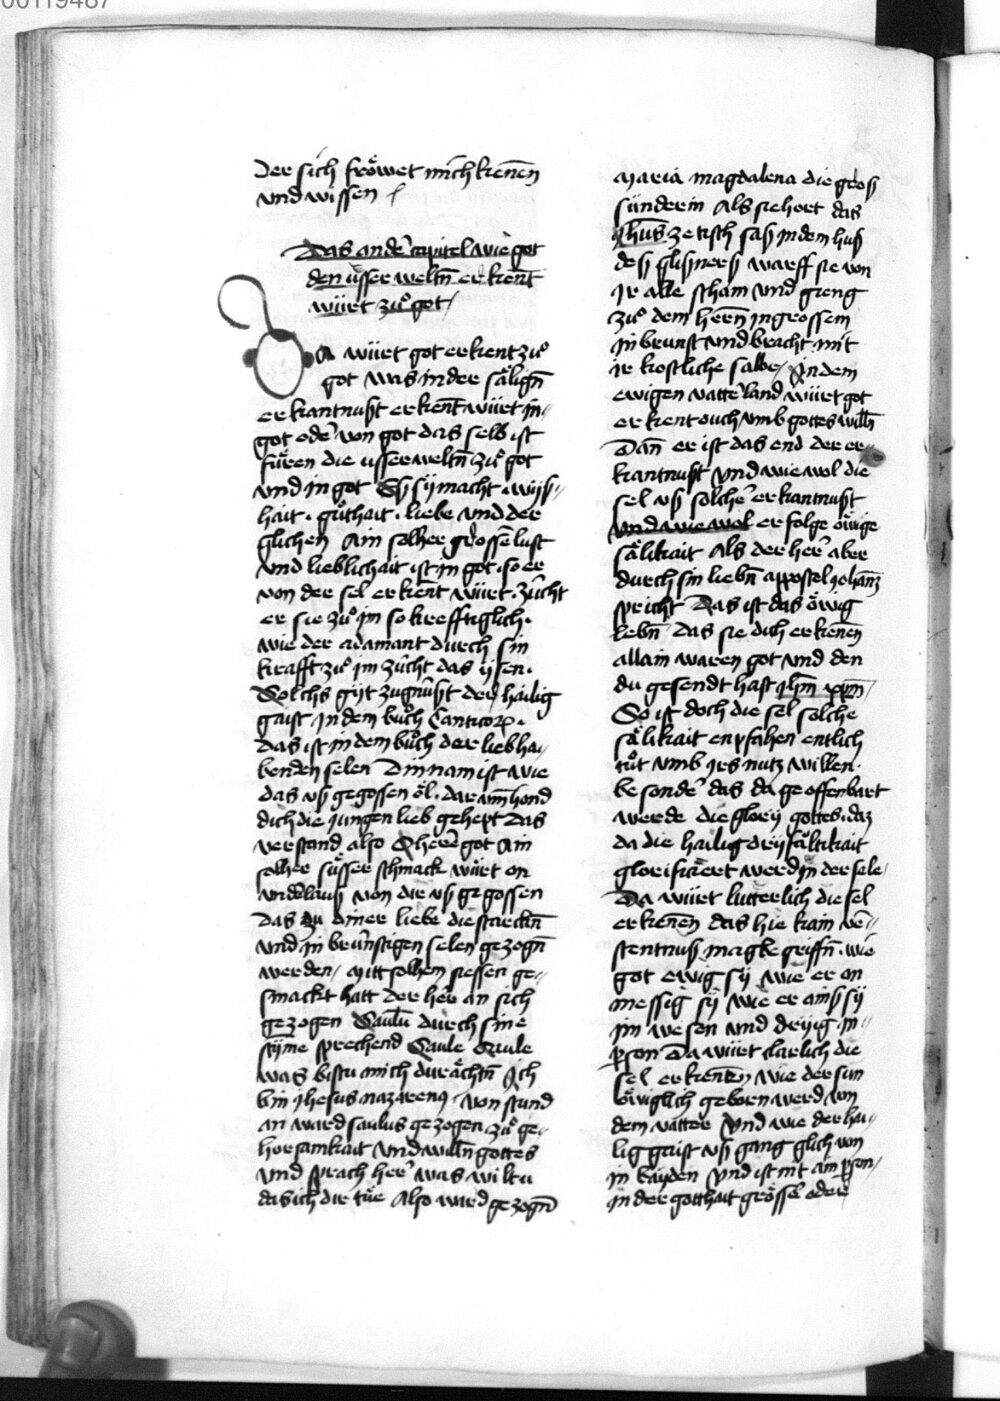 00119487
Der sich fröwet mich kenen̄
vnd wissen
Das ander̄ capitel wie got
den usser weltn̄ er kent̄
wúrt zuͦ got /
Da wúrt got erkent zuͦ
got was in der sälign̄
erkantnuſt erkent̄ wúrt in
got oder̄ von got das selb ist
fuͤren die usserweltn̄ zuͦ got
vnd in got Sÿ sij macht . wijß
hait . guͦthait . liebe vnd der
glichen Ain solher grossē lust
vnd lieblichait ist in got . so er
von der sel erkent̄ wúrt . zúcht
er sie zuͦ im so krefftiglich .
wie der adamant durch sin
krafft zuͦ im zúcht das ijsen .
Solchs git zugnúſt der hailig
gaist in dem buͦch Canticoꝝ .
das ist in dem buͦch der liebha
benden selen Din nam ist wie
das vß gegossen öl . dar vmb hond
dich die jungen lieb gehept Das
verstand also O herr̄ got Ain
solher suͤsser schmack wúrt on
vnderlauß von dir vß gegossen
Das zu diner liebe die starckn̄
vnd in brúnstigen selen gezogn̄
werden / Mitt solhem siessen ge
smackt hatt der her̄ an sich
gezogen Saulū durch sine
stijme sprechend Saule Saule
was bistu mich durächtn̄ Ich
bin jhesus nazarenꝰ . von stund
an ward saulus gezogen zuͦ ge
horsamkait vnd willn̄ gottes
vnd sprach her̄ was wiltu
das ich dir tuͤe Also ward gezogn̄
Maria magdalena die groß
súnderin Als sie hort das
Jhūs ze tisch saß in dem huß
deß glißners warff sie von
Ir alle scham vnd gieng
zuͦ dem hern̄ in grossem
inbrunst vnd bracht mit
ir kostliche salbe / In dem
ewigen vatter̄land wúrt got
erkent ouch vmb gottes willn̄
Dan̄ er ist das end der er
kantnuſt vnd wie wol die
sel vß solcher̄ erkantnuſt
vnd wie wol er folge öwige
sälikait Als der her̄ aber
durch sin liebn̄ appostel johan̄z
spricht Das ist das öwig
lebn̄ das sie dich erkenen̄
allain waren got vnd den
du gesendt hast jhm̄ xpm̄
So ist doch die sel solche
sälikait enpfahen entlich
nit vmb jrs nutz willen .
besonder̄ das da geoffenbart
werde die glorij gottes . daz
da die hailig drijfältikait
glorificiert werd in der sele
Da wúrt lutterlich die sel
erkenen̄ das hie kain ver̄
stentnuß mag begriffn̄ . wie
got ewig sij wie er on
messig sij wie er ainß sij
im wesen vnd drijig in
pson Da wúrt clarlich die
sel erkennen wie der sun
öwiglich geborn werd von
dem vatter vnd wie der hai
lig gaist vß gang glich von
in baijden vnd ist nit ain pson
in der gotthait grösser̄ oder̄